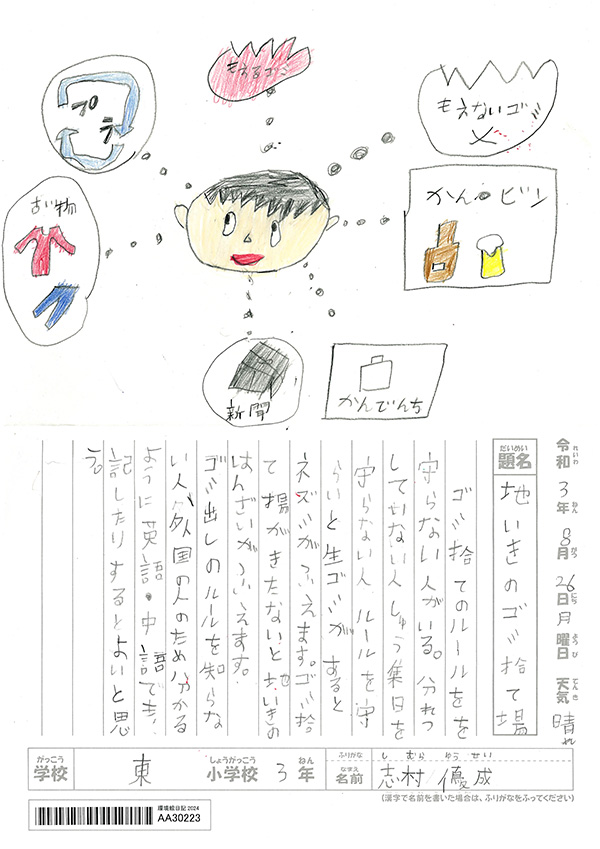 もえるゴミ
プラ
もえないゴミ
古い物
かん・ビン
新聞
かんでんち
令和3年8月26日月曜日 天気 晴れ
れいわ ねん がつ にち ようび てんき
だいめい
題名 地いきのゴミ捨て場
ゴミ捨てのルールをを
守らない人がいる。分れつ
してかない人しゅう集日を
守らない人 ルールを守
らいと生ゴミがすると
ネズミがふえます。ゴミ捨
て場がきたないと地いきの
はんざいがふえます。
ゴミ出しのルールを知らな
い人が外国の人のため分かる
ように英語・中語でき、
記したりするとよいと思
う。
がっこう しょうがっこう ねん ふりがな しむら ゆうせい
学校 東 小学校 3年 なまえ 名前 志村 優成
(漢字で名前を書いた場合は、ふりがなをふってください)
環境絵日記 2024
AA30223